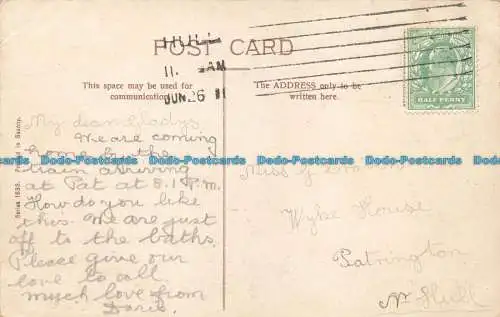 HULL
POST CARD
11. AM
JUN.26 11
HALF PENNY
This space may be used for
communication.
The ADDRESS only to be
written here.
Series 1535. Printed in Saxony.
My dear lady
We are coming
home by the
train arriving
at Pat at 8.1 P.M.
How do you like
this. We are just
off to the baths.
Please give our
love to all
much love from
Doris.
Miss G
Wyke House
Patrington
Nr Hull
Dodo-Postcards Dodo-Postcards Dodo-Postcards Dodo-Postcards
Dodo-Postcards Dodo-Postcards Dodo-Postcards Dodo-Postcards